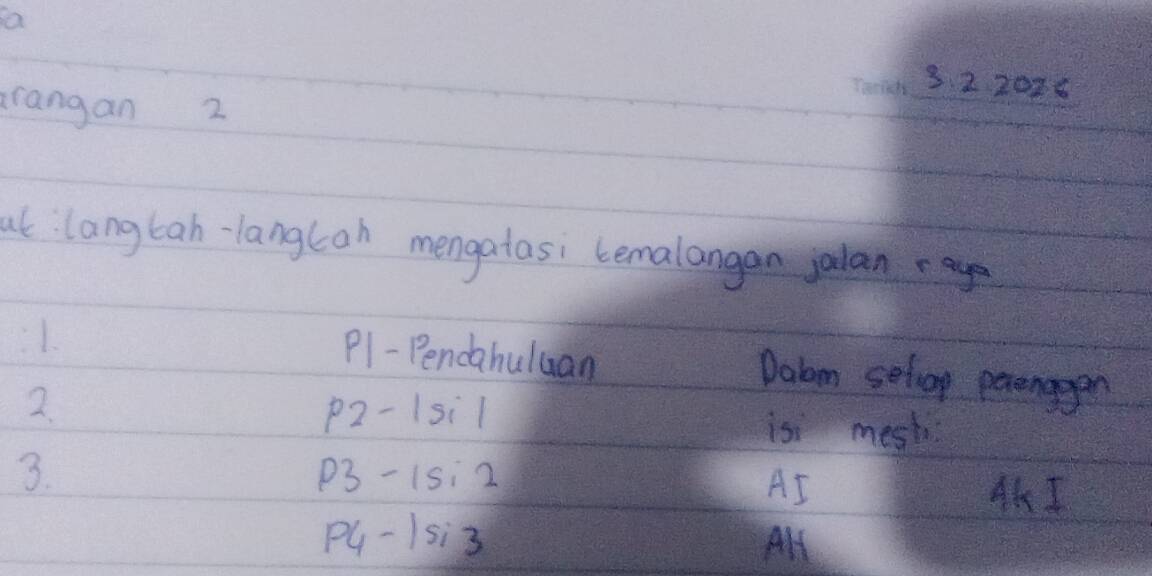 sa
Tarikh 3.2.2026
arangan 2
uk : langkah-langkah mengatasi kemalangan jalan raya
1. P1 - Pendahuluan Dalam setiap perenggan
2. P2 - Isi 1 isi mesti:
3. P3 - Isi 2 AI AkI
P4 - Isi 3 AH